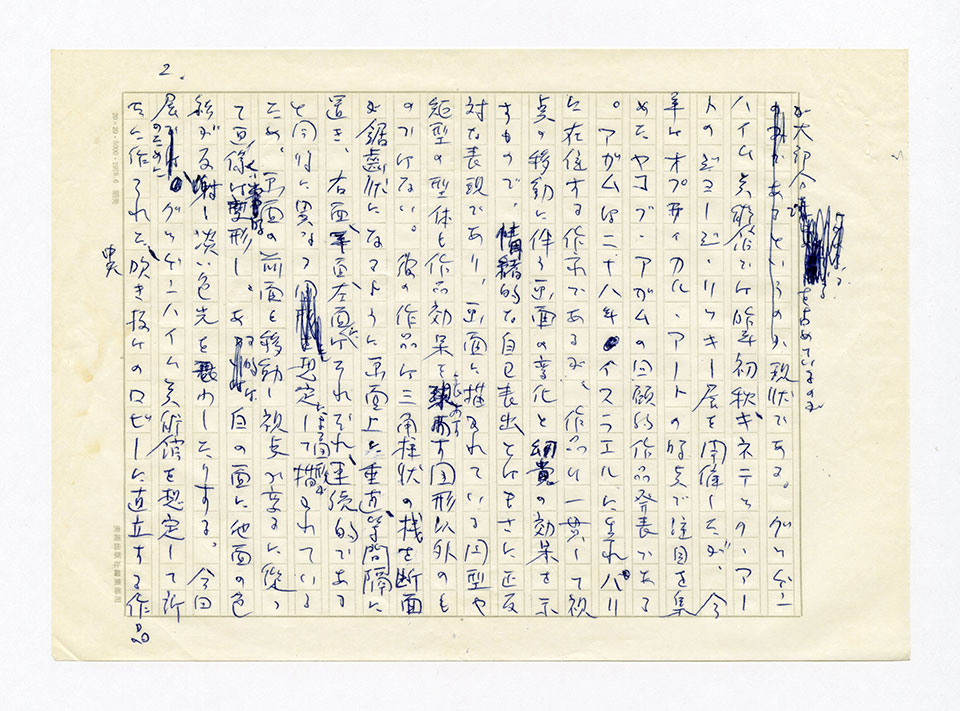 2.
が大部分
を占めているのが
現状である。グッゲン
ハイム美術館では昨年初秋、キネティック・アー
トのジョージ・リッキー展を開催したが、今
年はオプティカル・アートの好点で注目を集
めたヤコブ・アガムの回顧的作品発表がある
。アガムは二十八年イスラエルに生れパリ
に在住する作家であるが、作品は一貫して視
点の移動に伴う画面の変化と の効果を示
すもので、情緒的な自己表出とはまさに正反
対な表現であり、画面に描かれている円型や
矩型の型体も作品効果を 図形以外のも
のではない。彼の作品は三角柱状の桟を断面
が鋸歯状になるように画面上に垂直、等間隔に
置き、右面、左面はそれぞれ連続的である
と同時に異なる 想定して描かれている
ため、画面の前面を移動し視点が変るに従っ
て画像は 変形し、ある 白の面に他面の色
彩が反射し淡い色光を わしたりする。今回
展のために、グッゲンハイム美術館を想定して新
たに作られた、吹き抜けのロビーに直立する作品
20×20
美術出版社編集部用